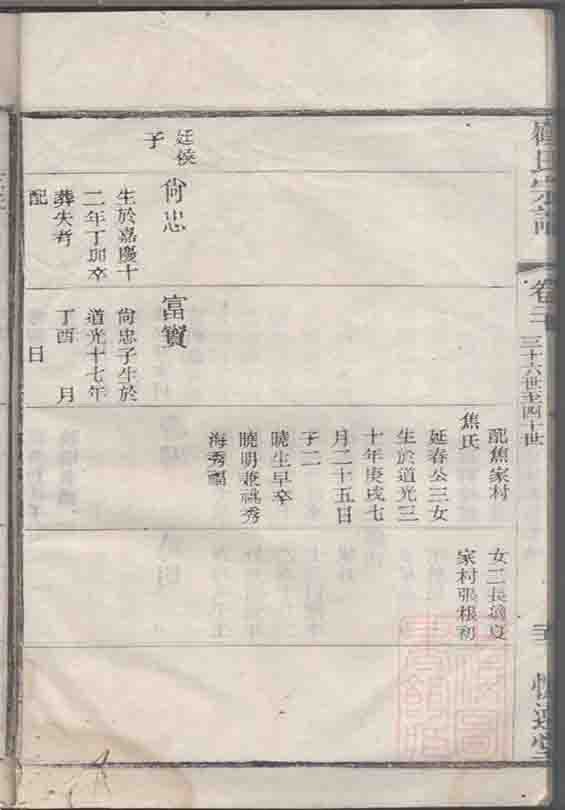 氏宗譜
卷二
三十六世至四十世
廷侯
子
尙忠
生於嘉慶十
二年丁卯卒
葬失考
配
富寶
尙忠子生於
道光十七年
丁酉 月
日
配焦家村
焦氏
延春公三女
生於道光三
十年庚戌七
月二十五日
子二
曉生早卒
曉明兼祧秀
海秀福
女二長適夏
家村張根初